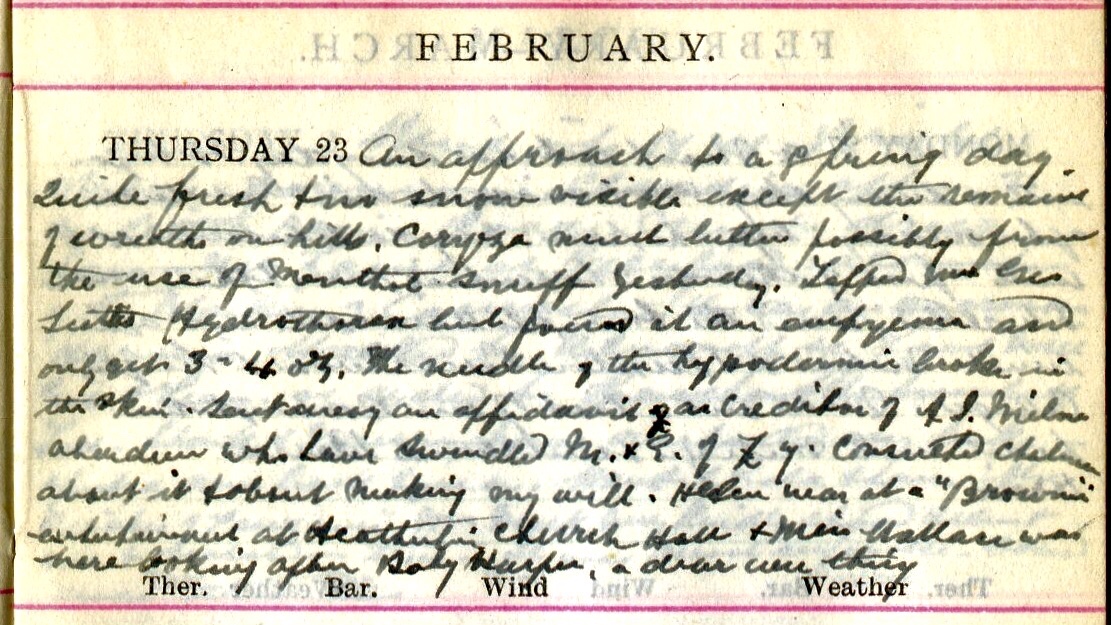 FEBRUARY.
THURSDAY 23 An approach to a spring day
Quite fresh & no snow visible except the remains
of wreaths on hills. Coryza much better possibly from
the use of Menthol snuff yesterday. Tapped
Hydrothorax but found it an empyema and
only got 3-4 oz. The needle of the hypodermic broke in
the skin. Sent away an affidavit as Creditor of A. I. Milne
Aberdeen who have swindled M. & E. of Consulted
about it & about making my will. Helen was at a "Brownie"
entertainment at Church Hall & Miss Wallace was
here looking after Baby Harper, a dear wee thing
Ther. Bar. Wind Weather